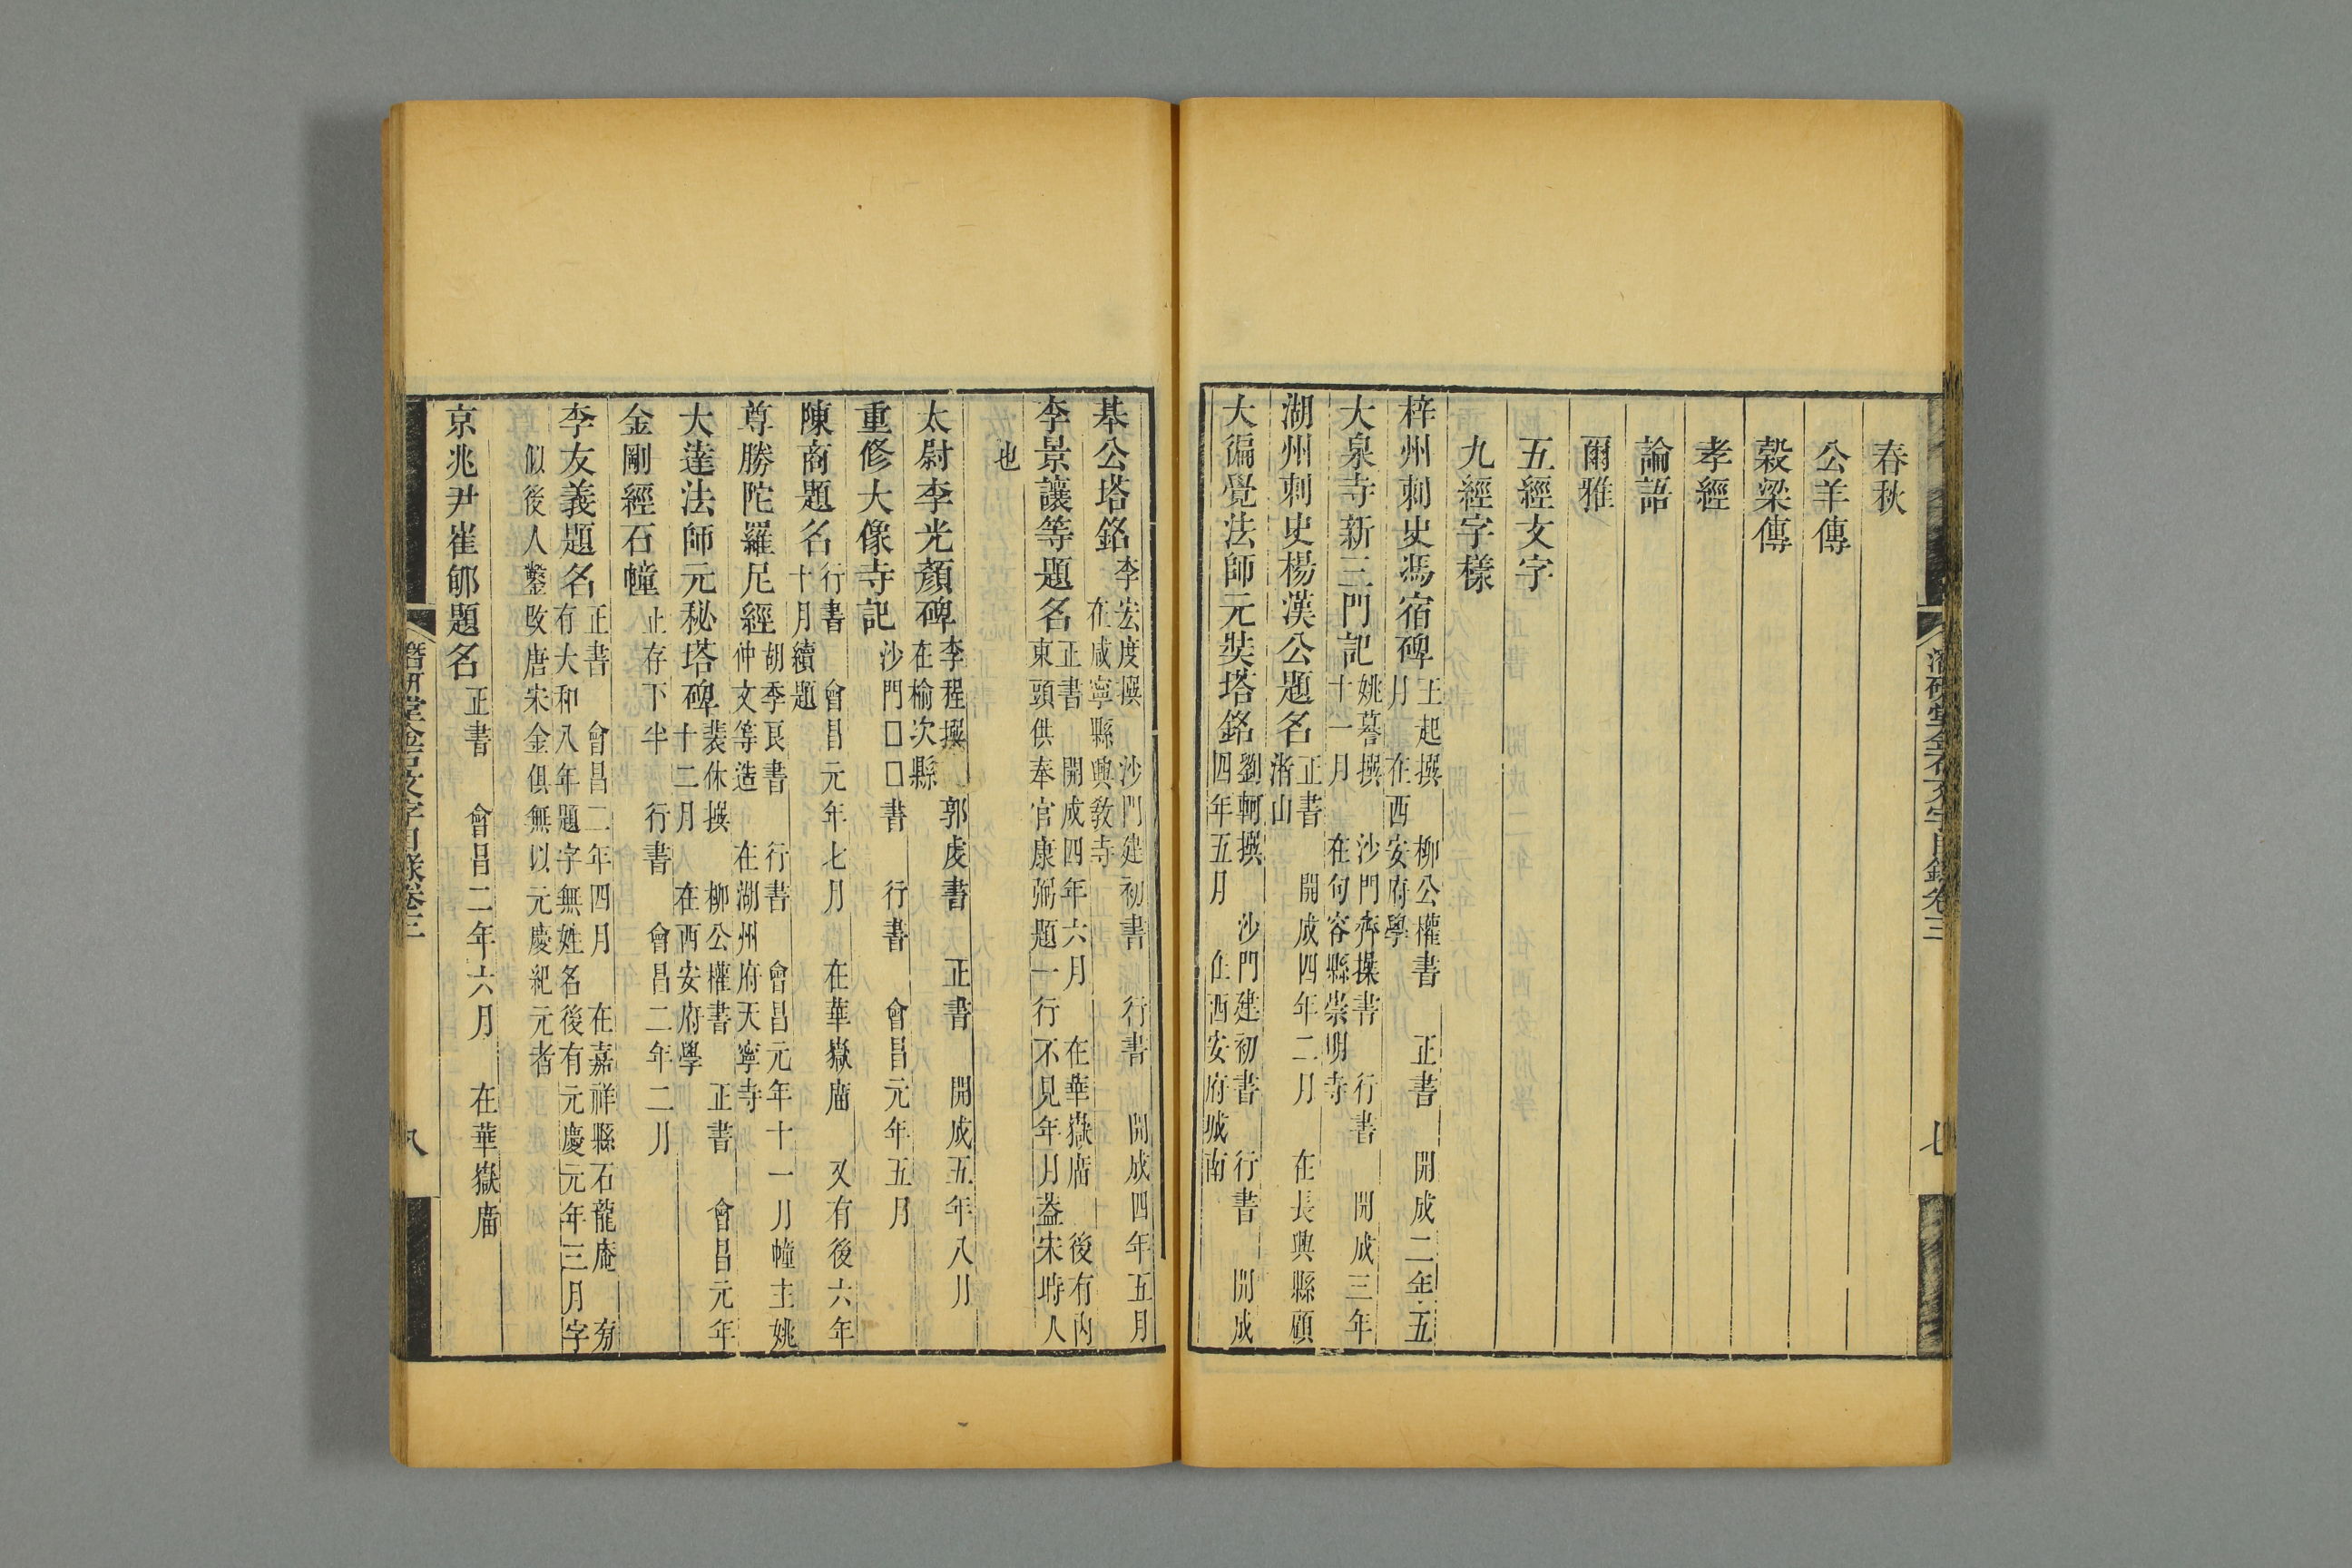 春秋
公羊傳
穀梁傳
孝經
論語
爾雅
五經文字
九經字樣
梓州刺史馮宿碑 王起撰 柳公權書 正書 開成二年五
月 在西安府學
大泉寺新三門記 姚謩撰 沙門齊操書 行書 開成三年
十一月 在句容縣崇明寺
湖州刺史楊漢公題名 正書 開成四年二月 在長興縣顧
渚山
大徧覺法師元奘塔銘 劉軻撰 沙門建初書 行書 開成
四年五月 在西安府城南
潛研堂金石文字目錄卷三 七
基公塔銘 李宏度撰 沙門建初書 行書 開成四年五月
在咸寧縣興教寺
李景讓等題名 正書 開成四年六月 在華嶽廟 後有內
東頭供奉官康弼題一行不見年月葢宋時人
也
太尉李光顏碑 李程撰 郭虔書 正書 開成五年八月
在榆次縣
重修大像寺記 沙門□□書 行書 會昌元年五月
陳商題名 行書 會昌元年七月 在華嶽廟 又有後六年
十月續題
尊勝陀羅尼經 胡季良書 行書 會昌元年十一月幢主姚
仲文等造 在湖州府天寧寺
大達法師元秘塔碑 裴休撰 柳公權書 正書 會昌元年
十二月 在西安府學
金剛經石幢 止存下半 行書 會昌二年二月
李友義題名 正書 會昌二年四月 在嘉祥縣石龍庵 旁
有大和八年題字無姓名後有元慶元年三月字
似後人鑿改唐宋金俱無以元慶紀元者
京兆尹崔郇題名 正書 會昌二年六月 在華嶽廟
潛研堂金石文字目錄卷三 八